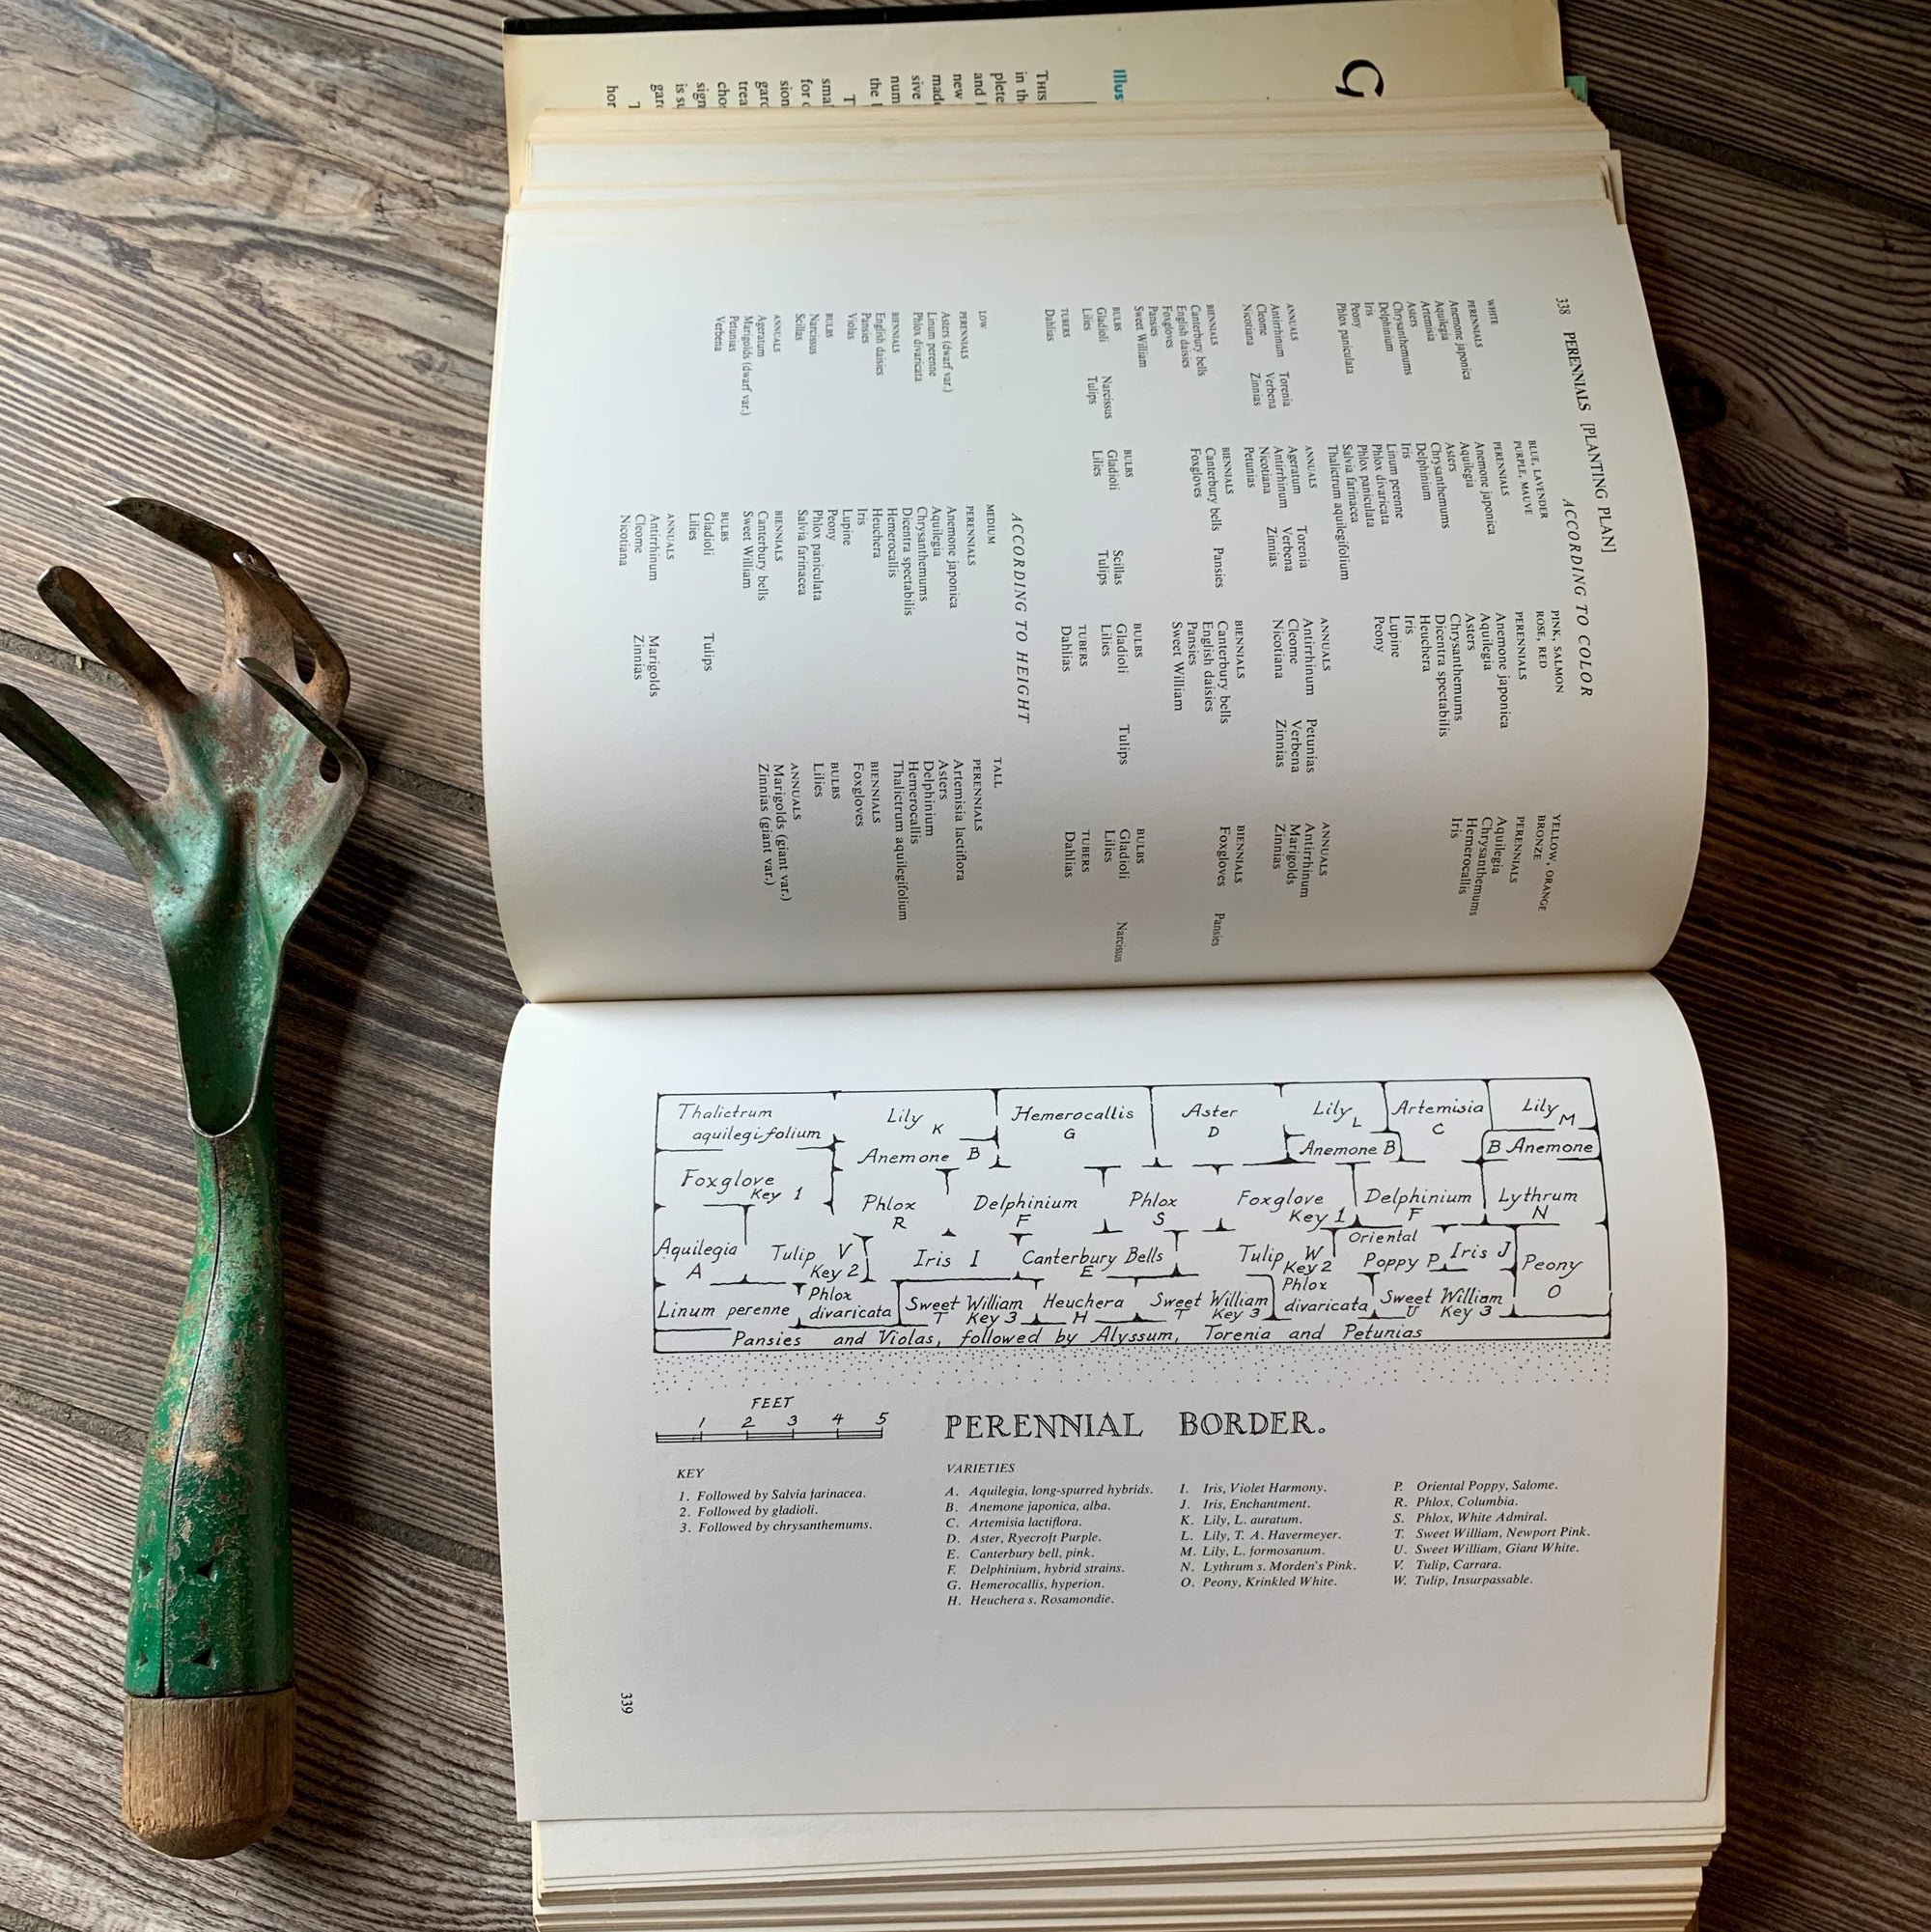 G
Illus
THIS
in th
plete
and
new
made
sive
num
the
T
smal
for
sion
gard
trea
choi
sign
is su
gard
T
hor
338 PERENNIALS [PLANTING PLAN]
ACCORDING TO COLOR
WHITE
PERENNIALS
Anemone japonica
Aquilegia
Artemisia
Asters
Chrysanthemums
Delphinium
Iris
Peony
Phlox paniculata
ANNUALS
Antirrhinum Torenia
Cleome Verbena
Nicotiana Zinnias
BIENNIALS
Canterbury bells
English daisies
Foxgloves
Pansies
Sweet William
BULBS
Gladioli Narcissus
Lilies Tulips
TUBERS
Dahlias
BLUE, LAVENDER
PURPLE, MAUVE
PERENNIALS
Anemone japonica
Aquilegia
Asters
Chrysanthemums
Delphinium
Iris
Linum perenne
Phlox divaricata
Phlox paniculata
Salvia farinacea
Thalictrum aquilegifolium
ANNUALS
Ageratum Torenia
Antirrhinum Verbena
Nicotiana Zinnias
Petunias
BIENNIALS
Canterbury bells Pansies
Foxgloves
BULBS
Gladioli Scillas
Lilies Tulips
PINK, SALMON
ROSE, RED
PERENNIALS
Anemone japonica
Aquilegia
Asters
Chrysanthemums
Dicentra spectabilis
Heuchera
Iris
Lupine
Peony
ANNUALS
Antirrhinum Petunias
Cleome Verbena
Nicotiana Zinnias
BIENNIALS
Canterbury bells
English daisies
Pansies
Sweet William
BULBS
Gladioli Tulips
Lilies
TUBERS
Dahlias
YELLOW, ORANGE
BRONZE
PERENNIALS
Aquilegia
Chrysanthemums
Hemerocallis
Iris
ANNUALS
Antirrhinum
Marigolds
Zinnias
BIENNIALS
Foxgloves Pansies
BULBS
Gladioli Narcissus
Lilies
TUBERS
Dahlias
ACCORDING TO HEIGHT
LOW
PERENNIALS
Asters (dwarf var.)
Linum perenne
Phlox divaricata
BIENNIALS
English daisies
Pansies
Violas
BULBS
Narcissus
Scillas
ANNUALS
Ageratum
Marigolds (dwarf var.)
Petunias
Verbena
MEDIUM
PERENNIALS
Anemone japonica
Aquilegia
Chrysanthemums
Dicentra spectabilis
Hemerocallis
Heuchera
Iris
Lupine
Peony
Phlox paniculata
Salvia farinacea
BIENNIALS
Canterbury bells
Sweet William
BULBS
Gladioli Tulips
Lilies
ANNUALS
Antirrhinum Marigolds
Cleome Zinnias
Nicotiana
TALL
PERENNIALS
Artemisia lactiflora
Asters
Delphinium
Hemerocallis
Thalictrum aquilegifolium
BIENNIALS
Foxgloves
BULBS
Lilies
ANNUALS
Marigolds (giant var.)
Zinnias (giant var.)
Thalictrum
aquilegifolium
Lily K
Hemerocallis
G
Aster
D
Lily L
Artemisia
C
Lily M
Anemone B
Anemone B
B Anemone
Foxglove
Key 1
Phlox
R
Delphinium
F
Phlox
S
Foxglove
Key 1
Delphinium
F
Lythrum
N
Aquilegia
A
Tulip V
Key 2
Iris I
Canterbury Bells
E
Tulip W
Key 2
Oriental
Poppy P
Iris J
Peony
O
Linum perenne
Phlox
divaricata
Sweet William
T Key 3
Heuchera
H
Sweet William
T Key 3
Phlox
divaricata
Sweet William
U Key 3
Pansies and Violas, followed by Alyssum, Torenia and Petunias
FEET
1 2 3 4 5
PERENNIAL BORDER.
KEY
1. Followed by Salvia farinacea.
2. Followed by gladioli.
3. Followed by chrysanthemums.
VARIETIES
A. Aquilegia, long-spurred hybrids.
B. Anemone japonica, alba.
C. Artemisia lactiflora.
D. Aster, Ryecroft Purple.
E. Canterbury bell, pink.
F. Delphinium, hybrid strains.
G. Hemerocallis, hyperion.
H. Heuchera s. Rosamondie.
I. Iris, Violet Harmony.
J. Iris, Enchantment.
K. Lily, L. auratum.
L. Lily, T. A. Havermeyer.
M. Lily, L. formosanum.
N. Lythrum s. Morden's Pink.
O. Peony, Krinkled White.
P. Oriental Poppy, Salome.
R. Phlox, Columbia.
S. Phlox, White Admiral.
T. Sweet William, Newport Pink.
U. Sweet William, Giant White.
V. Tulip, Carrara.
W. Tulip, Insurpassable.
339